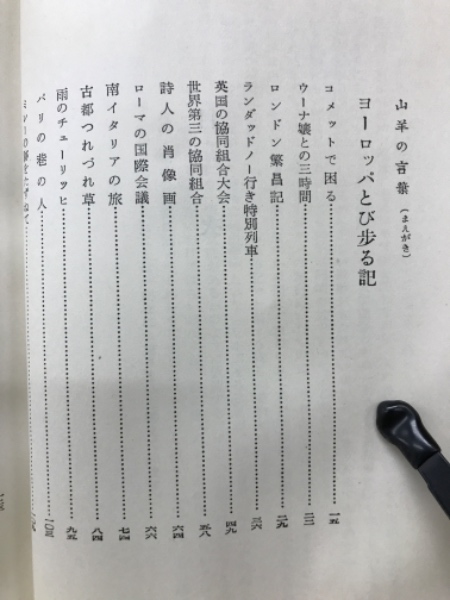 山羊の言葉（まえがき）
ヨーロッパとび歩る記
コメットで困る……一五
ウーナ嬢との三時間……二二
ロンドン繁昌記……二九
ランダッドノー行き特別列車……三六
英国の協同組合大会……四九
世界第三の協同組合……五八
詩人の肖像画……六四
ローマの国際会議……六六
南イタリアの旅……七四
古都つれづれ草……八四
雨のチューリッヒ……九五
パリの巷の人……一〇三